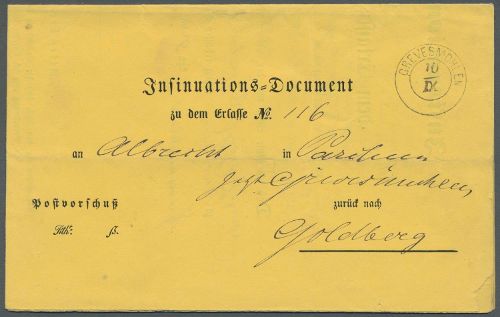 GREVESMÜHLEN
10
IX
Insinuations-Document
zu dem Erlasse No. 116
an Albrecht in Parchim
jetzt Grevesmühlen
Postvorschuß zurück nach
Rth: ß. Goldberg